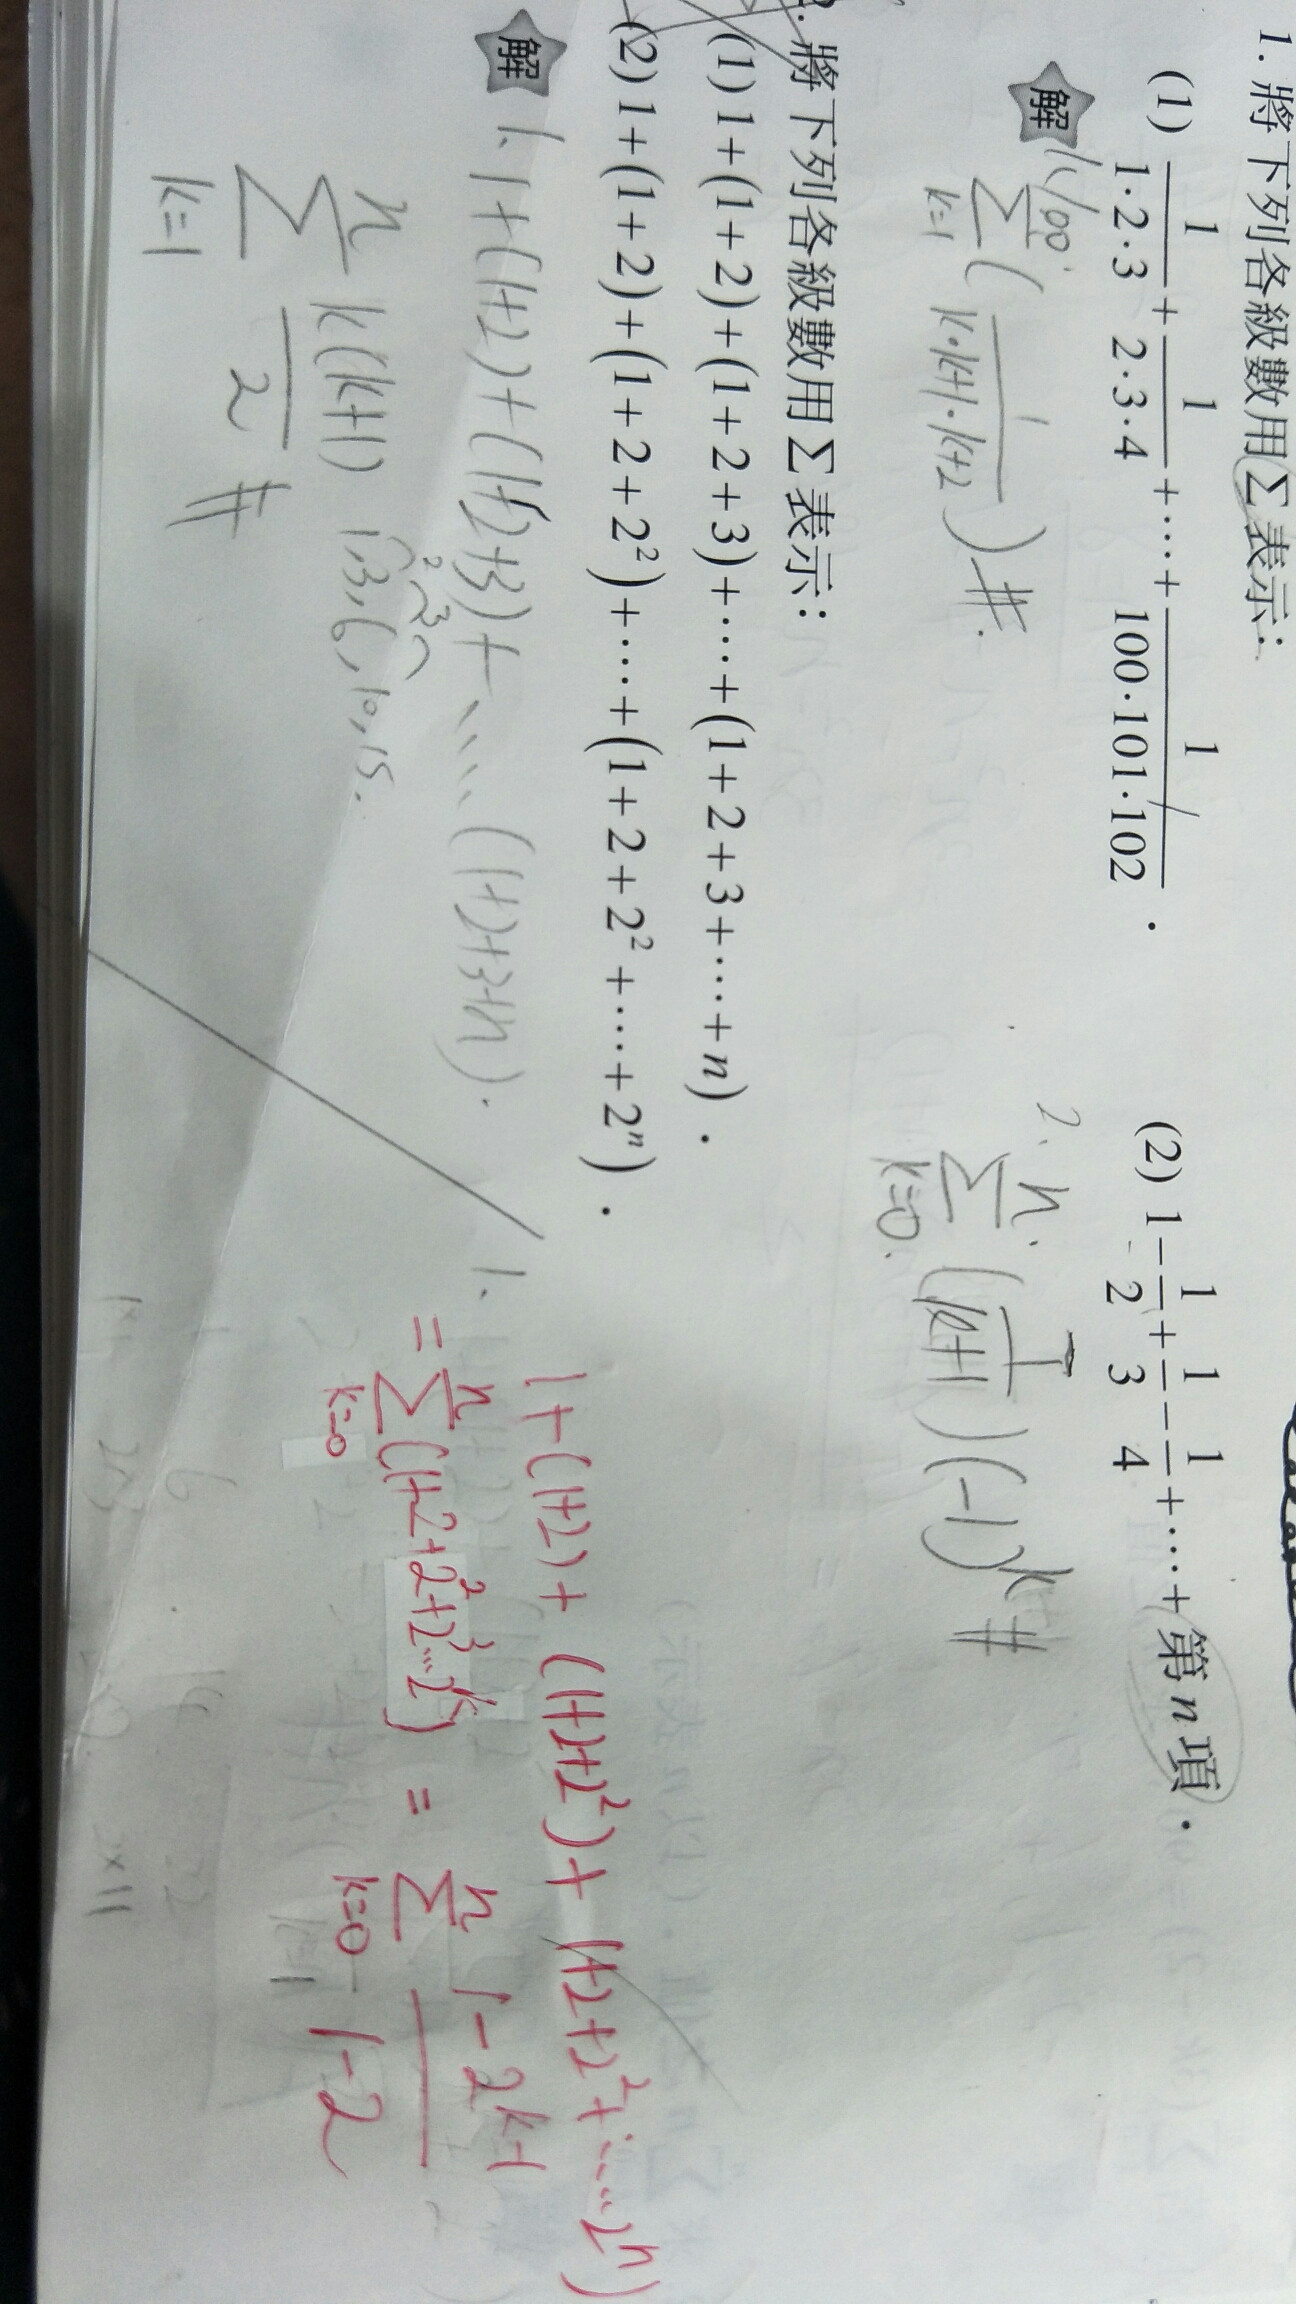 1. 將下列各級數用Σ表示：
(1) 1/(1·2·3) + 1/(2·3·4) + ⋯ + 1/(100·101·102) .
(2) 1 − 1/2 + 1/3 − 1/4 + ⋯ + 第n項 .
解
1. 100 Σ k=1 ( 1/(k·k+1·k+2) ) #.
2. n Σ k=0 ( 1/(k+1) )(−1)^k #
2. 將下列各級數用Σ表示：
(1) 1+(1+2)+(1+2+3)+⋯+(1+2+3+⋯+n) .
(2) 1+(1+2)+(1+2+2²)+⋯+(1+2+2²+⋯+2ⁿ) .
解
1. 1+(1+2)+(1+2+3)+....(1+2+3+n).
n Σ k=1 k(k+1)/2 #
1,3,6,10,15.
2 3
1.
1+(1+2)+(1+2+2²)+(1+2+2²+.....2ⁿ)
= n Σ k=0 (1+2+2²+2³...2^k) = n Σ k=0 (1−2^k+1)/(1−2)